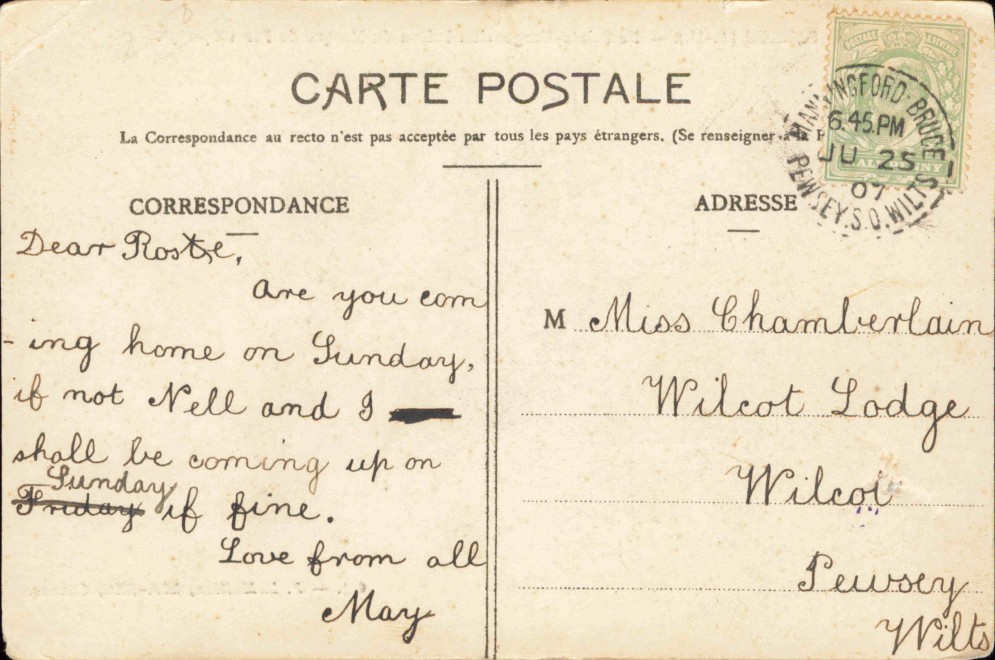 CARTE POSTALE
La Correspondance au recto n'est pas acceptée par tous les pays étrangers. (Se renseigner à la
MANNINGFORD-BRUCE
6.45.PM
JU 25
07
PEWSEY.S.O.WILTS
CORRESPONDANCE
Dear Rose,
are you com
-ing home on Sunday,
if not Nell and I
shall be coming up on
Sunday
Friday if fine.
Love from all
May
ADRESSE
M Miss Chamberlain
Wilcot Lodge
Wilcot
Pewsey
Wilts